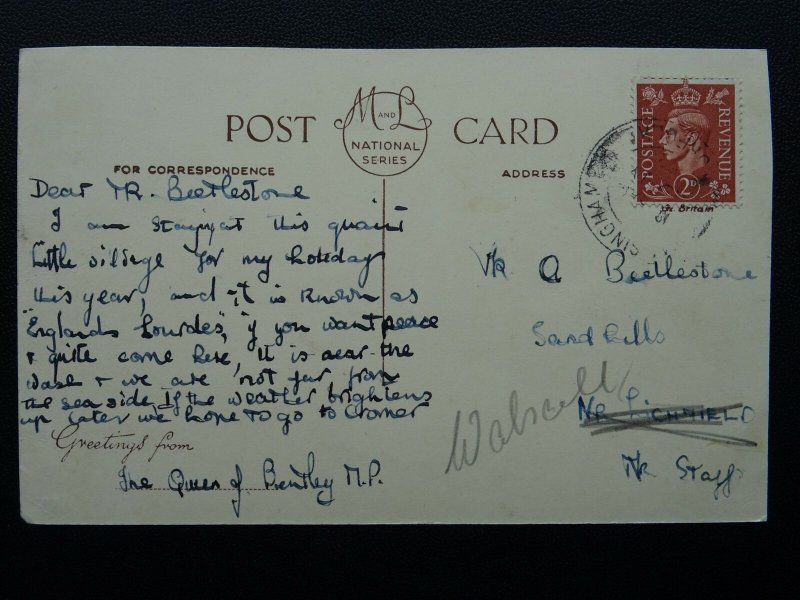 POST CARD
M AND L
NATIONAL
SERIES
FOR CORRESPONDENCE
ADDRESS
POSTAGE
REVENUE
2D
Gt. Britain
SINGHAM
Dear MR. Beetlestone
I am staying at this quaint
little village for my holiday
this year, and it is known as
"Englands Lourdes", if you want peace
& quite come here, It is near the
Wash & we are not far from
the sea side, If the weather brightens
up later we hope to go to Cromer
Greetings from
The Queen of Bentley M.P.
Mr A Beetlestone
Sandhills
Nr LICHFIELD
Walsall
Nr Staffs